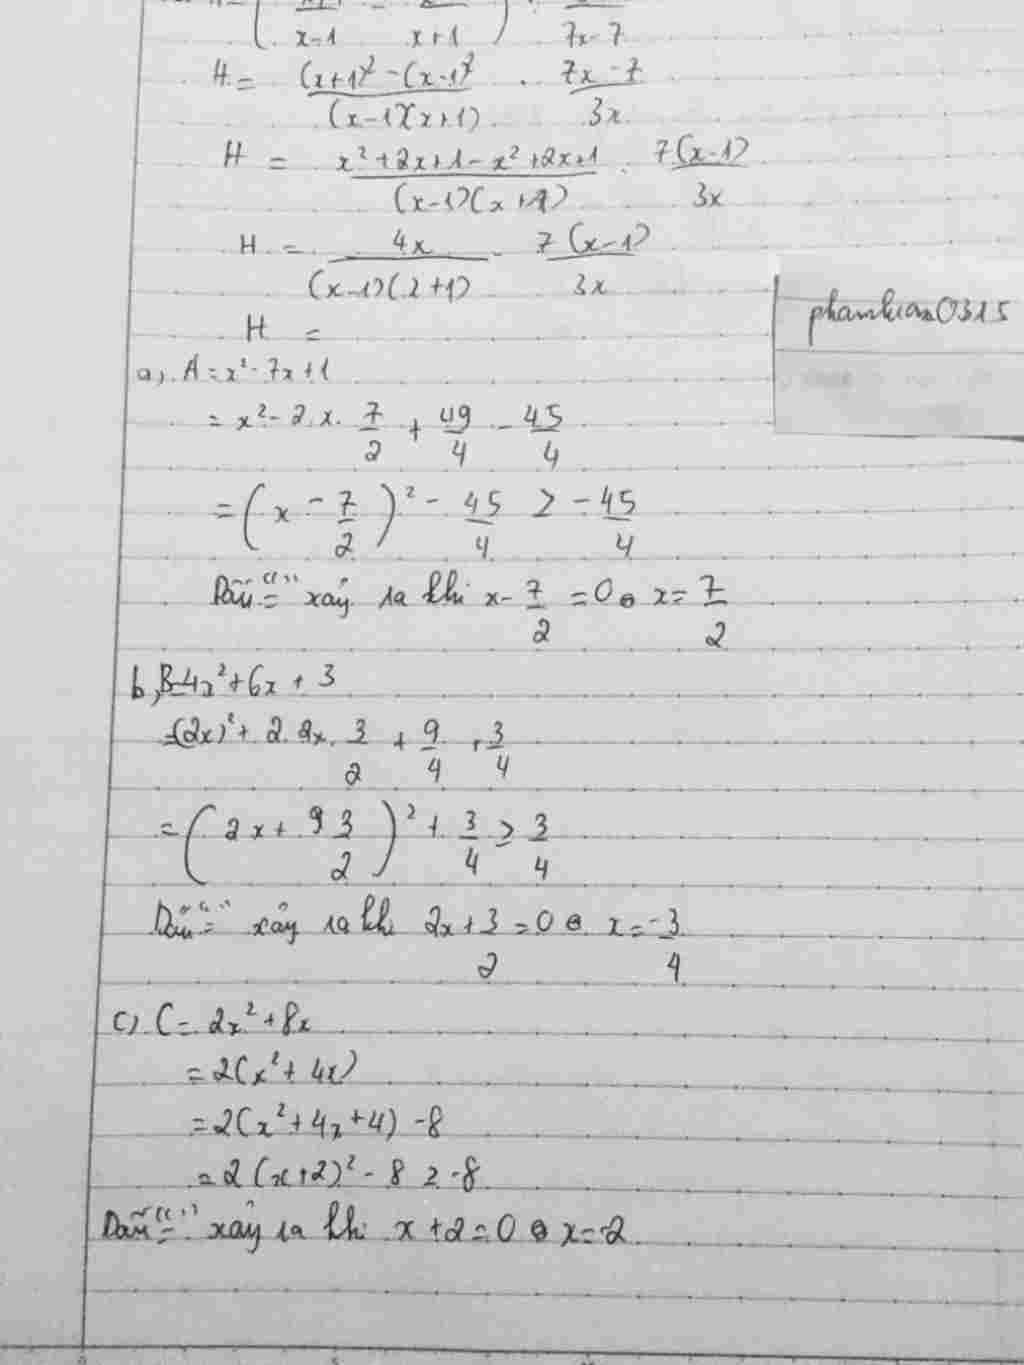 x-1 x+1 7x-7
H = (x+1)² - (x-1)² / (x-1)(x+1) . 7x-7 / 3x
H = x²+2x+1-x²+2x+1 / (x-1)(x+1) . 7(x-1) / 3x
H = 4x / (x-1)(2+1) . 7(x-1) / 3x
H =
phamhuan0315
a), A = x²-7x+1
= x²-2.x. 7/2 + 49/4 - 45/4
= (x - 7/2)² - 45/4 ≥ -45/4
Dấu "=" xảy ra khi x - 7/2 = 0 ⇔ x = 7/2
b, B=4x²+6x+3
=(2x)²+2.2x. 3/2 + 9/4 + 3/4
= (2x + 3/2)² + 3/4 ≥ 3/4
Dấu "=" xảy ra khi 2x + 3/2 = 0 ⇔ x = -3/4
c), C = 2x²+8x
= 2(x²+4x)
= 2(x²+4x+4) -8
= 2(x+2)² - 8 ≥ -8
Dấu "=" xảy ra khi x+2=0 ⇔ x=-2